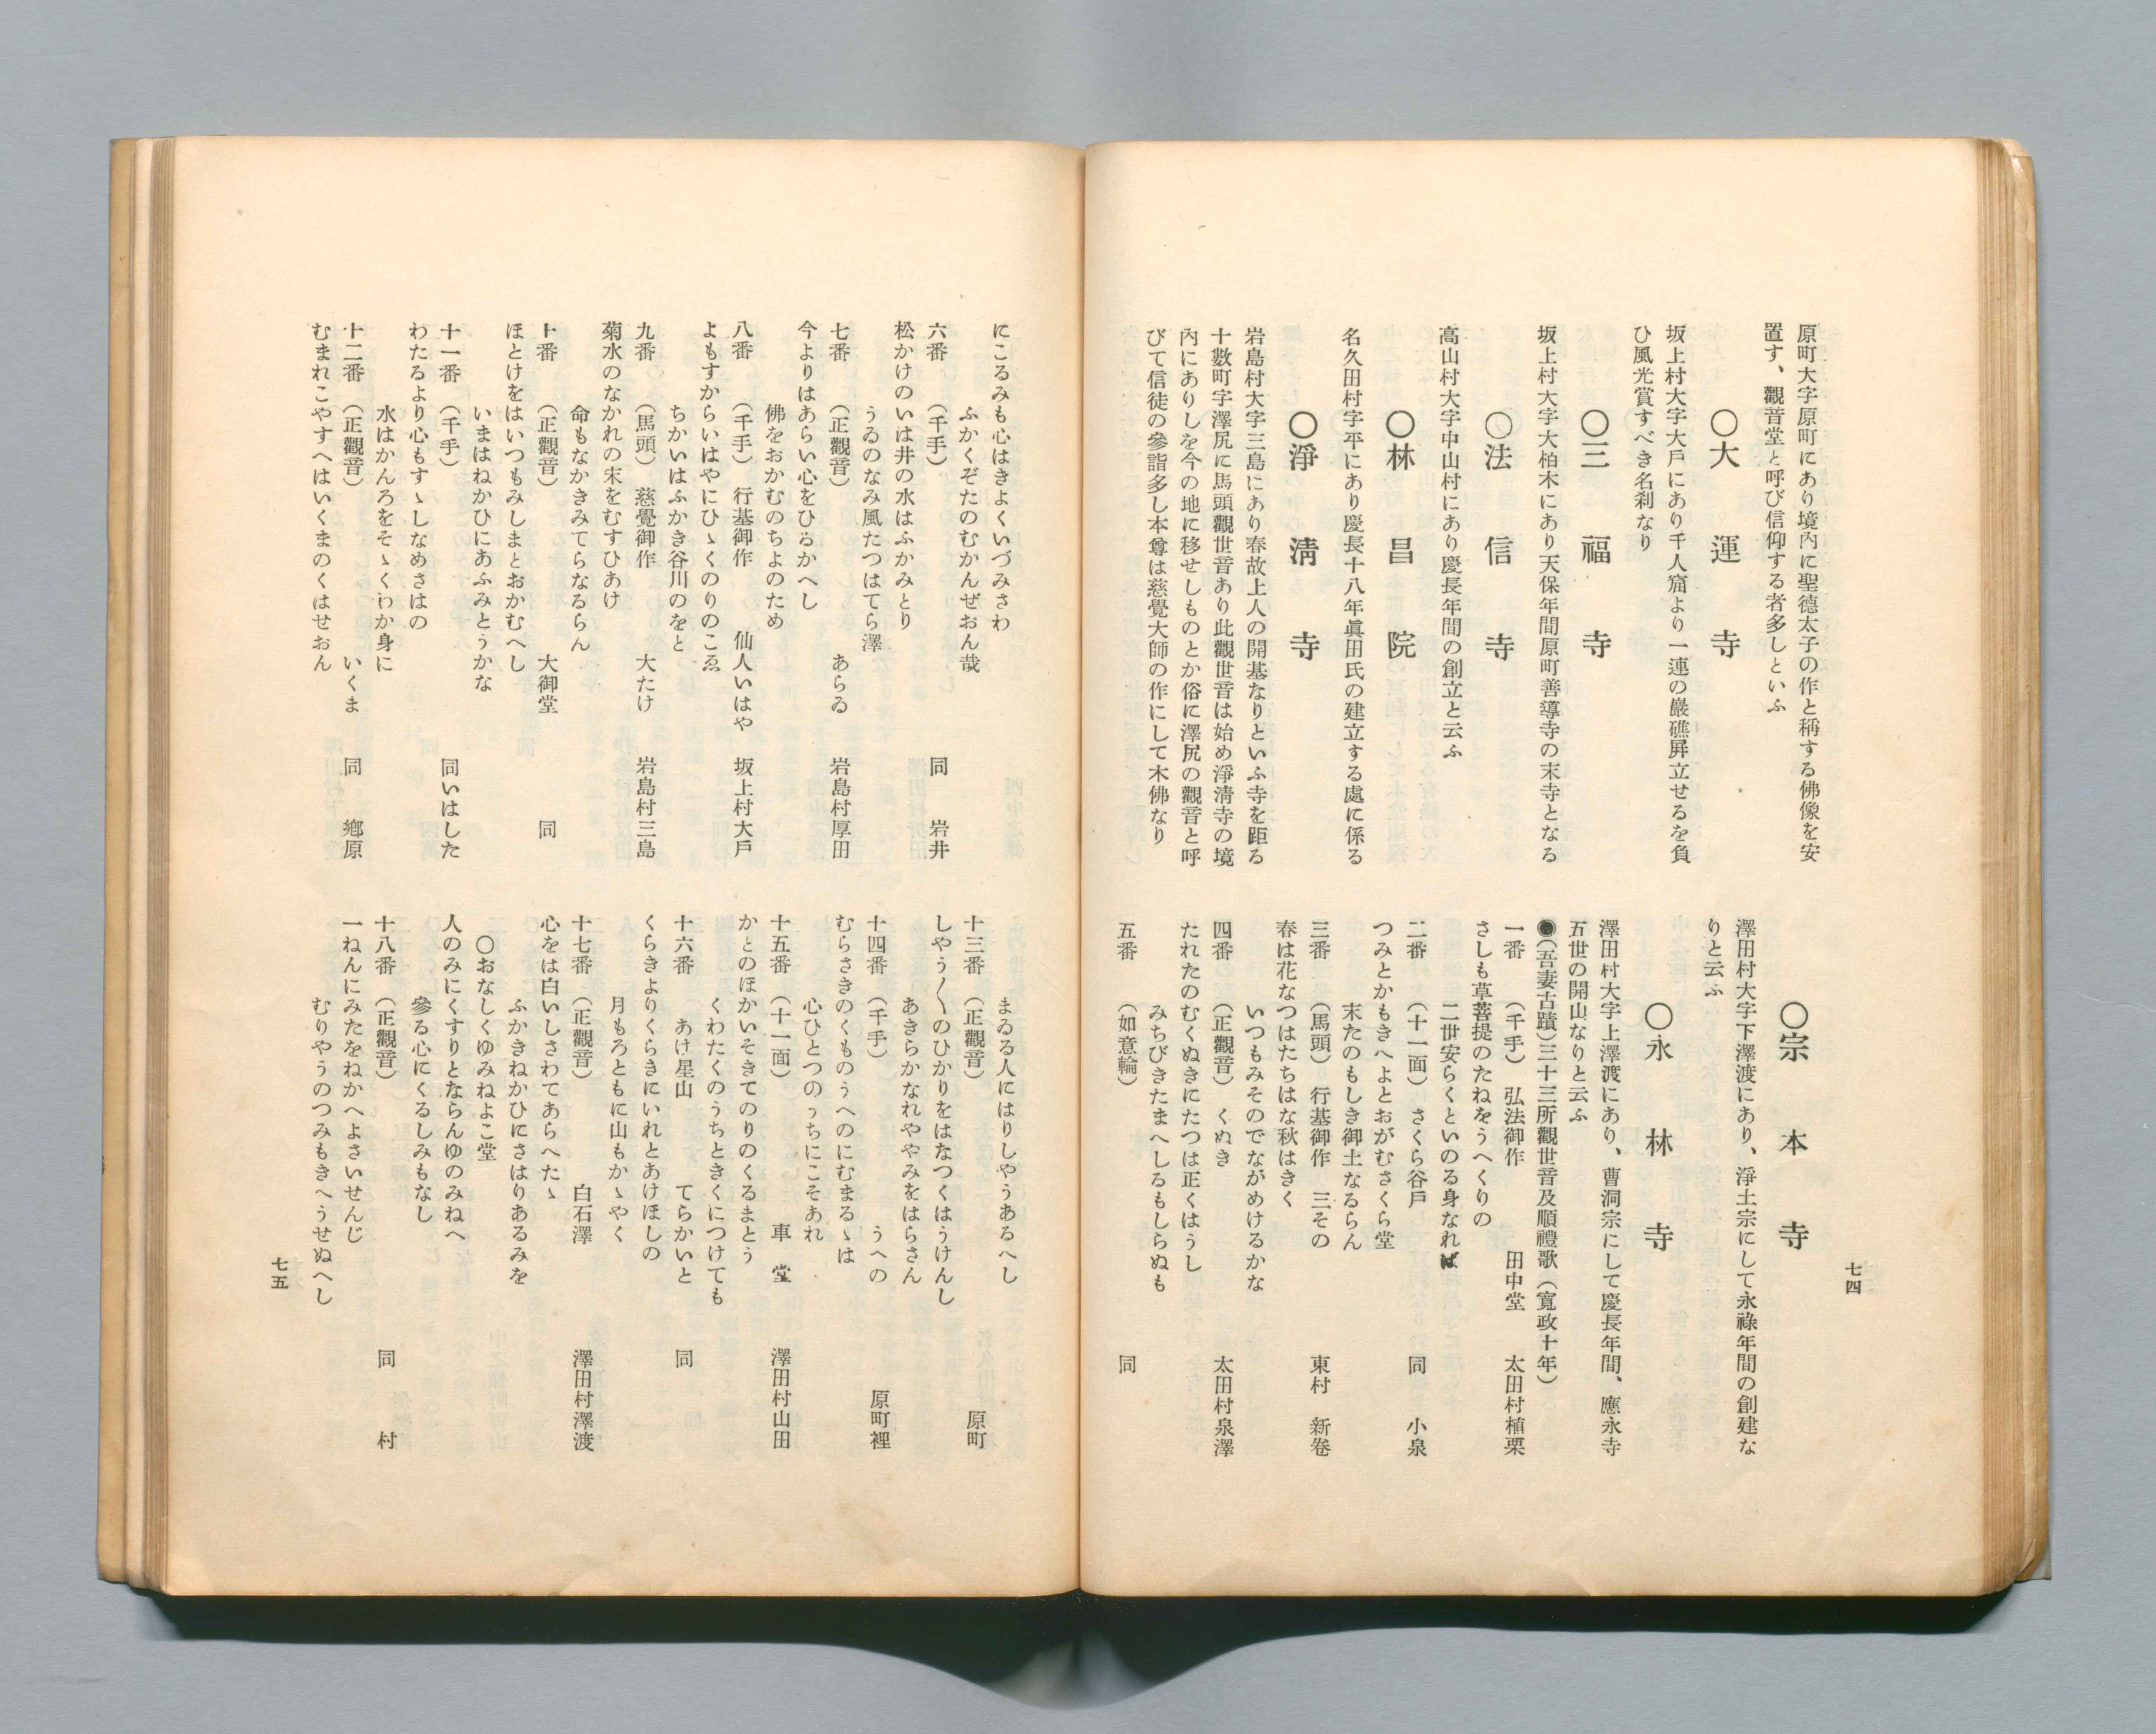 原町大字原町にあり境內に聖德太子の作と稱する佛像を安
置す、觀音堂と呼び信仰する者多しといふ
〇大運寺
坂上村大字大戶にあり千人窟より一連の巖礁屛立せるを負
ひ風光賞すべき名刹なり
〇三福寺
坂上村大字大柏木にあり天保年間原町善導寺の末寺となる
〇法信寺
高山村大字中山村にあり慶長年間の創立と云ふ
〇林昌院
名久田村字平にあり慶長十八年眞田氏の建立する處に係る
〇淨淸寺
岩島村大字三島にあり春故上人の開基なりといふ寺を距る
十數町字澤尻に馬頭觀世音あり此觀世音は始め淨淸寺の境
內にありしを今の地に移せしものとか俗に澤尻の觀音と呼
びて信徒の參詣多し本尊は慈覺大師の作にして木佛なり
〇宗本寺
澤田村大字下澤渡にあり、淨土宗にして永祿年間の創建な
りと云ふ
〇永林寺
澤田村大字上澤渡にあり、曹洞宗にして慶長年間、應永寺
五世の開山なりと云ふ
●(吾妻古蹟)三十三所觀世音及順禮歌(寬政十年)
一番 (千手) 弘法御作 田中堂 太田村植栗
さしも草菩提のたねをうへくりの
二世安らくといのる身なれば
二番 (十一面) さくら谷戶 同 小泉
つみとかもきへよとおがむさくら堂
末たのもしき御土なるらん
三番 (馬頭) 行基御作 三その 東村 新卷
春は花なつはたちはな秋はきく
いつもみそのでながめけるかな
四番 (正觀音) くぬき 太田村泉澤
たれたのむくぬきにたつは正くはうし
みちびきたまへしるもしらぬも
五番 (如意輪) 同
七四
にこるみも心はきよくいづみさわ
ふかくぞたのむかんぜおん哉
六番 (千手) 同 岩井
松かけのいは井の水はふかみとり
うゐのなみ風たつはてら澤
七番 (正觀音) あらゐ 岩島村厚田
今よりはあらい心をひるかへし
佛をおかむのちよのため
八番 (千手) 行基御作 仙人いはや 坂上村大戶
よもすからいはやにひゝくのりのこゑ
ちかいはふかき谷川のをと
九番 (馬頭) 慈覺御作 大たけ 岩島村三島
菊水のなかれの末をむすひあけ
命もなかきみてらなるらん
十番 (正觀音) 大御堂 同
ほとけをはいつもみしまとおかむへし
いまはねかひにあふみとうかな
十一番 (千手) 同いはした
わたるより心もすゝしなめさはの
水はかんろをそゝくわか身に
十二番 (正觀音) いくま 同 鄕原
むまれこやすへはいくまのくはせおん
まゐる人にはりしやうあるへし
十三番 (正觀音) 原町
しやう〱のひかりをはなつくはうけんし
あきらかなれややみをはらさん
十四番 (千手) うへの 原町裡
むらさきのくものうへのにむまるゝは
心ひとつのうちにこそあれ
十五番 (十一面) 車堂 澤田村山田
かとのほかいそきてのりのくるまとう
くわたくのうちときくにつけても
十六番 あけ星山 てらかいと 同
くらきよりくらきにいれとあけほしの
月もろともに山もかゝやく
十七番 (正觀音) 白石澤 澤田村澤渡
心をは白いしさわてあらへたゝ
ふかきねかひにさはりあるみを
〇おなしくゆみねよこ堂
人のみにくすりとならんゆのみねへ
參る心にくるしみもなし
十八番 (正觀音) 同 村
一ねんにみたをねかへよさいせんじ
むりやうのつみもきへうせぬへし
七五